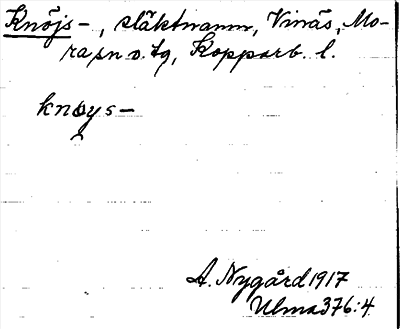 Knöjs-, släktnamn, Vinäs, Mo-
ra sn o. tg, Kopparb. l.
knøys-
A. Nygård 1917
Ulma 376:4.